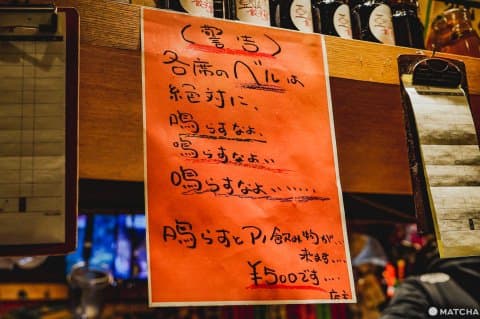 (警告)
各席のベルは
絶対に、
鳴らすなよ、
鳴らすなよ、、
鳴らすなよ、、、、、、
鳴らすとアノ飲み物が...
来ます....
¥500です....
店主
MATCHA